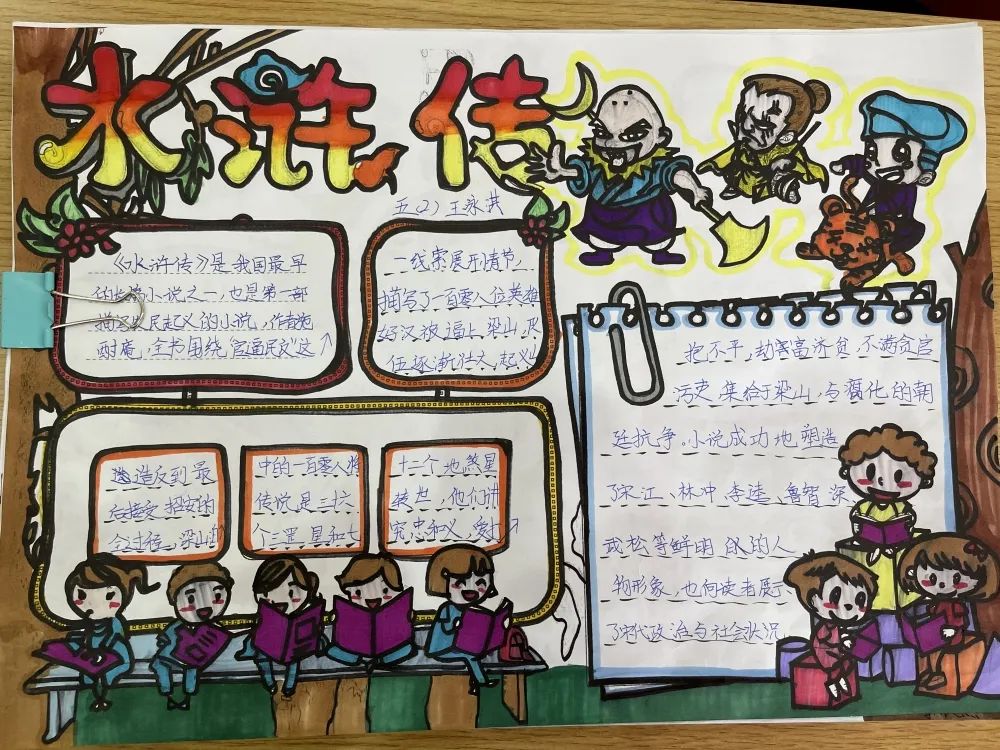 水浒传
五(2) 王泳淇
《水浒传》是我国最早
的长篇小说之一,也是第一部
描写农民起义的小说,作者施
耐庵,全书围绕"官逼民反"这
一线索展开情节,
描写了一百零八位英雄
好汉被逼上梁山,及
伍逐渐壮大,起义
造反到最
后接受招安的
全过程,梁山
中的一百零八将
传说是三十六
个天罡星和七
十二个地煞星
转世,他们讲
究忠和义,爱打
抱不平,劫富济贫,不满贪官
污吏,集合于梁山,与腐化的朝
廷抗争。小说成功地塑造
了宋江、林冲、李逵、鲁智深、
武松等鲜明的人
物形象,也向读者展示
了宋代政治与社会状况